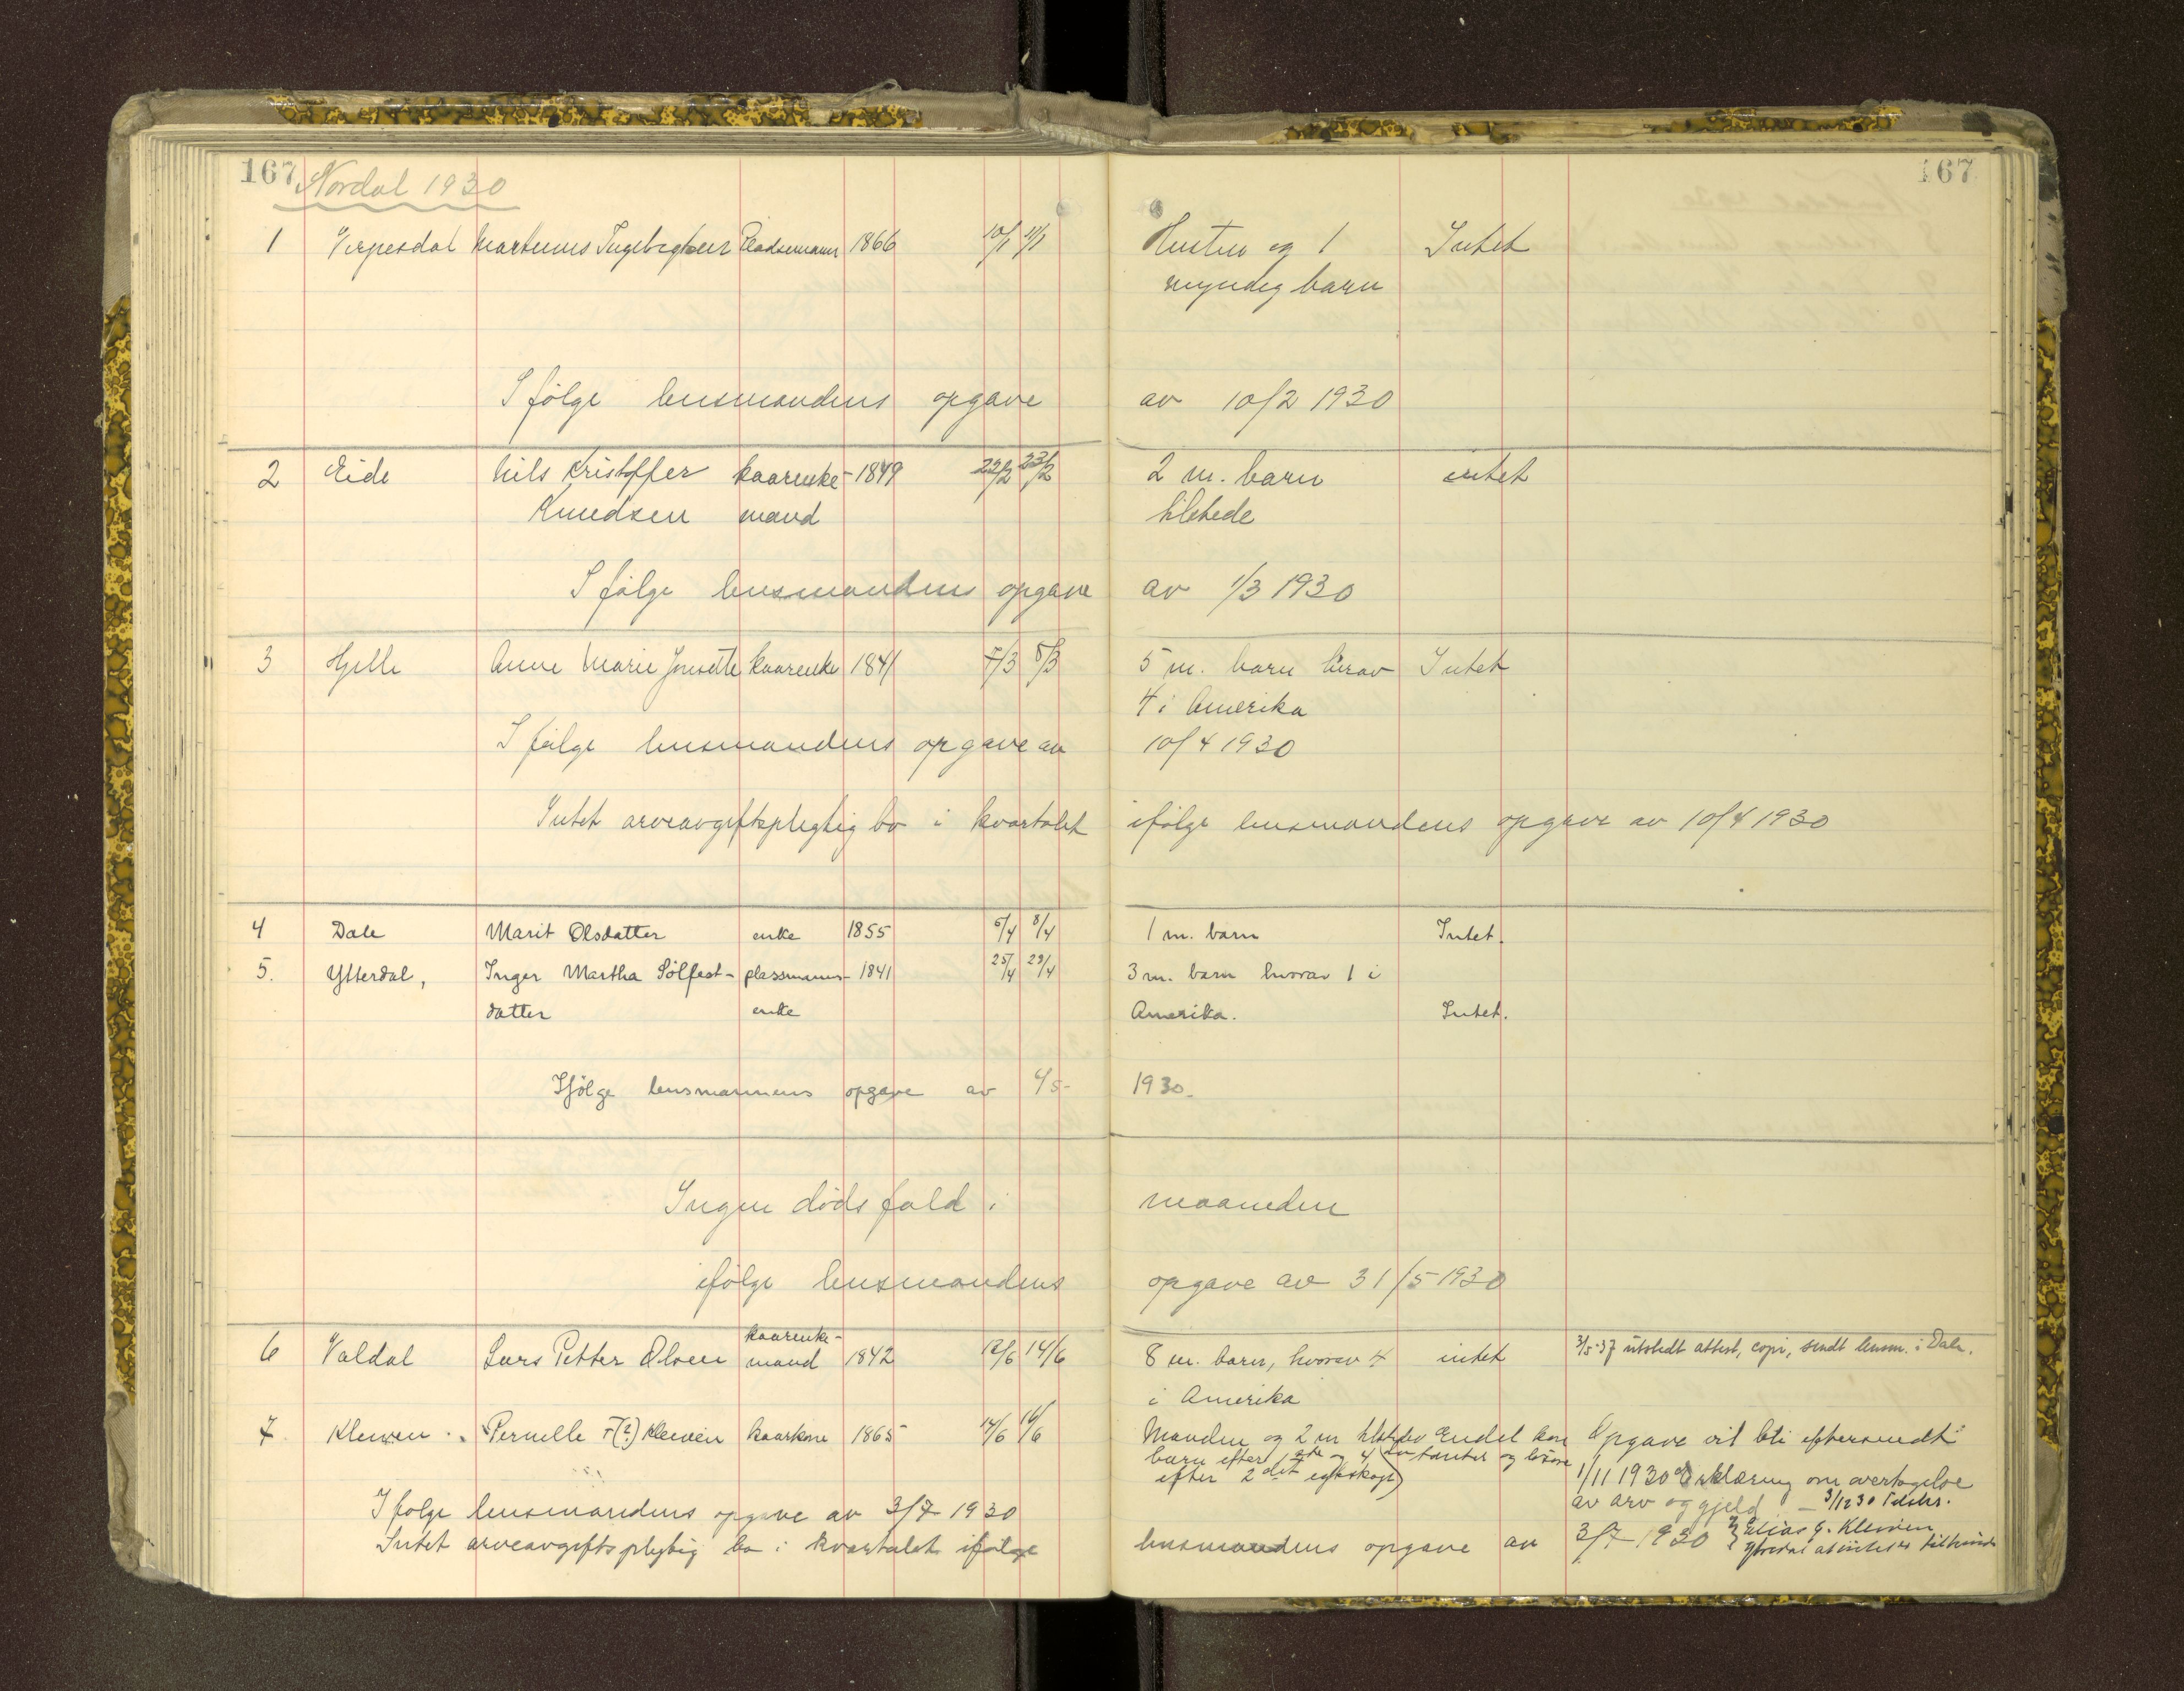 167 Nordal 1930 167
1 Verpesdal Martinus Ingebrigtsen Pladsemann 1866 10/1 11/1 Hustru og 1 Intet
myndig barn
Ifølge lensmandens opgave av 10/2 1930
2 Eide Nils Kristoffer kaarenke- 1849 22/2 23/2 2 m. barn intet
Knudsen mand tilstede
Ifølge lensmandens opgave av 1/3 1930
3 Hjelle Anne Marie Jonsette kaarenke 1841 7/3 8/3 5 m. barn herav Intet
4 i Amerika
Ifølge lensmandens opgave av 10/4 1930
Intet arveavgiftspligtig bo i kvartalet ifølge lensmandens opgave av 10/4 1930
4 Dale Marit Olsdatter enke 1855 6/4 8/4 1 m. barn Intet.
5. Ytterdal, Inger Martha Sölfest- plassmanns- 1841 25/4 29/4 3 m. barn hvorav 1 i
datter enke Amerika. Intet.
Ifölge lensmannens opgave av 6/5- 1930.
Ingen dødsfald i maaneden
ifølge lensmandens opgave av 31/5 1930
kaarenke-
6 Valdal Lars Petter Olsen mand 1842 12/6 14/6 8 m. barn, hvorav 4 intet 3/5-37 utstedt attest, copi, sendt lensm. i Dale.
i Amerika
7 Kleiven Pernille F(?) Kleiven kaarkone 1865 14/6 16/6 Manden og 2 m Endel Opgave vil bli eftersendt
barn efter og 4 og løsøre
efter 2det egteskap) 1/11 1930 Erklæring om overtagelse
av arv og gjeld – 3/12 30
Ifølge lensmandens opgave av 3/7 1930
Elias J. Kleiven
Intet arveavgiftspligtig bo i kvartalet ifølge lensmandens opgave av 3/7 1930